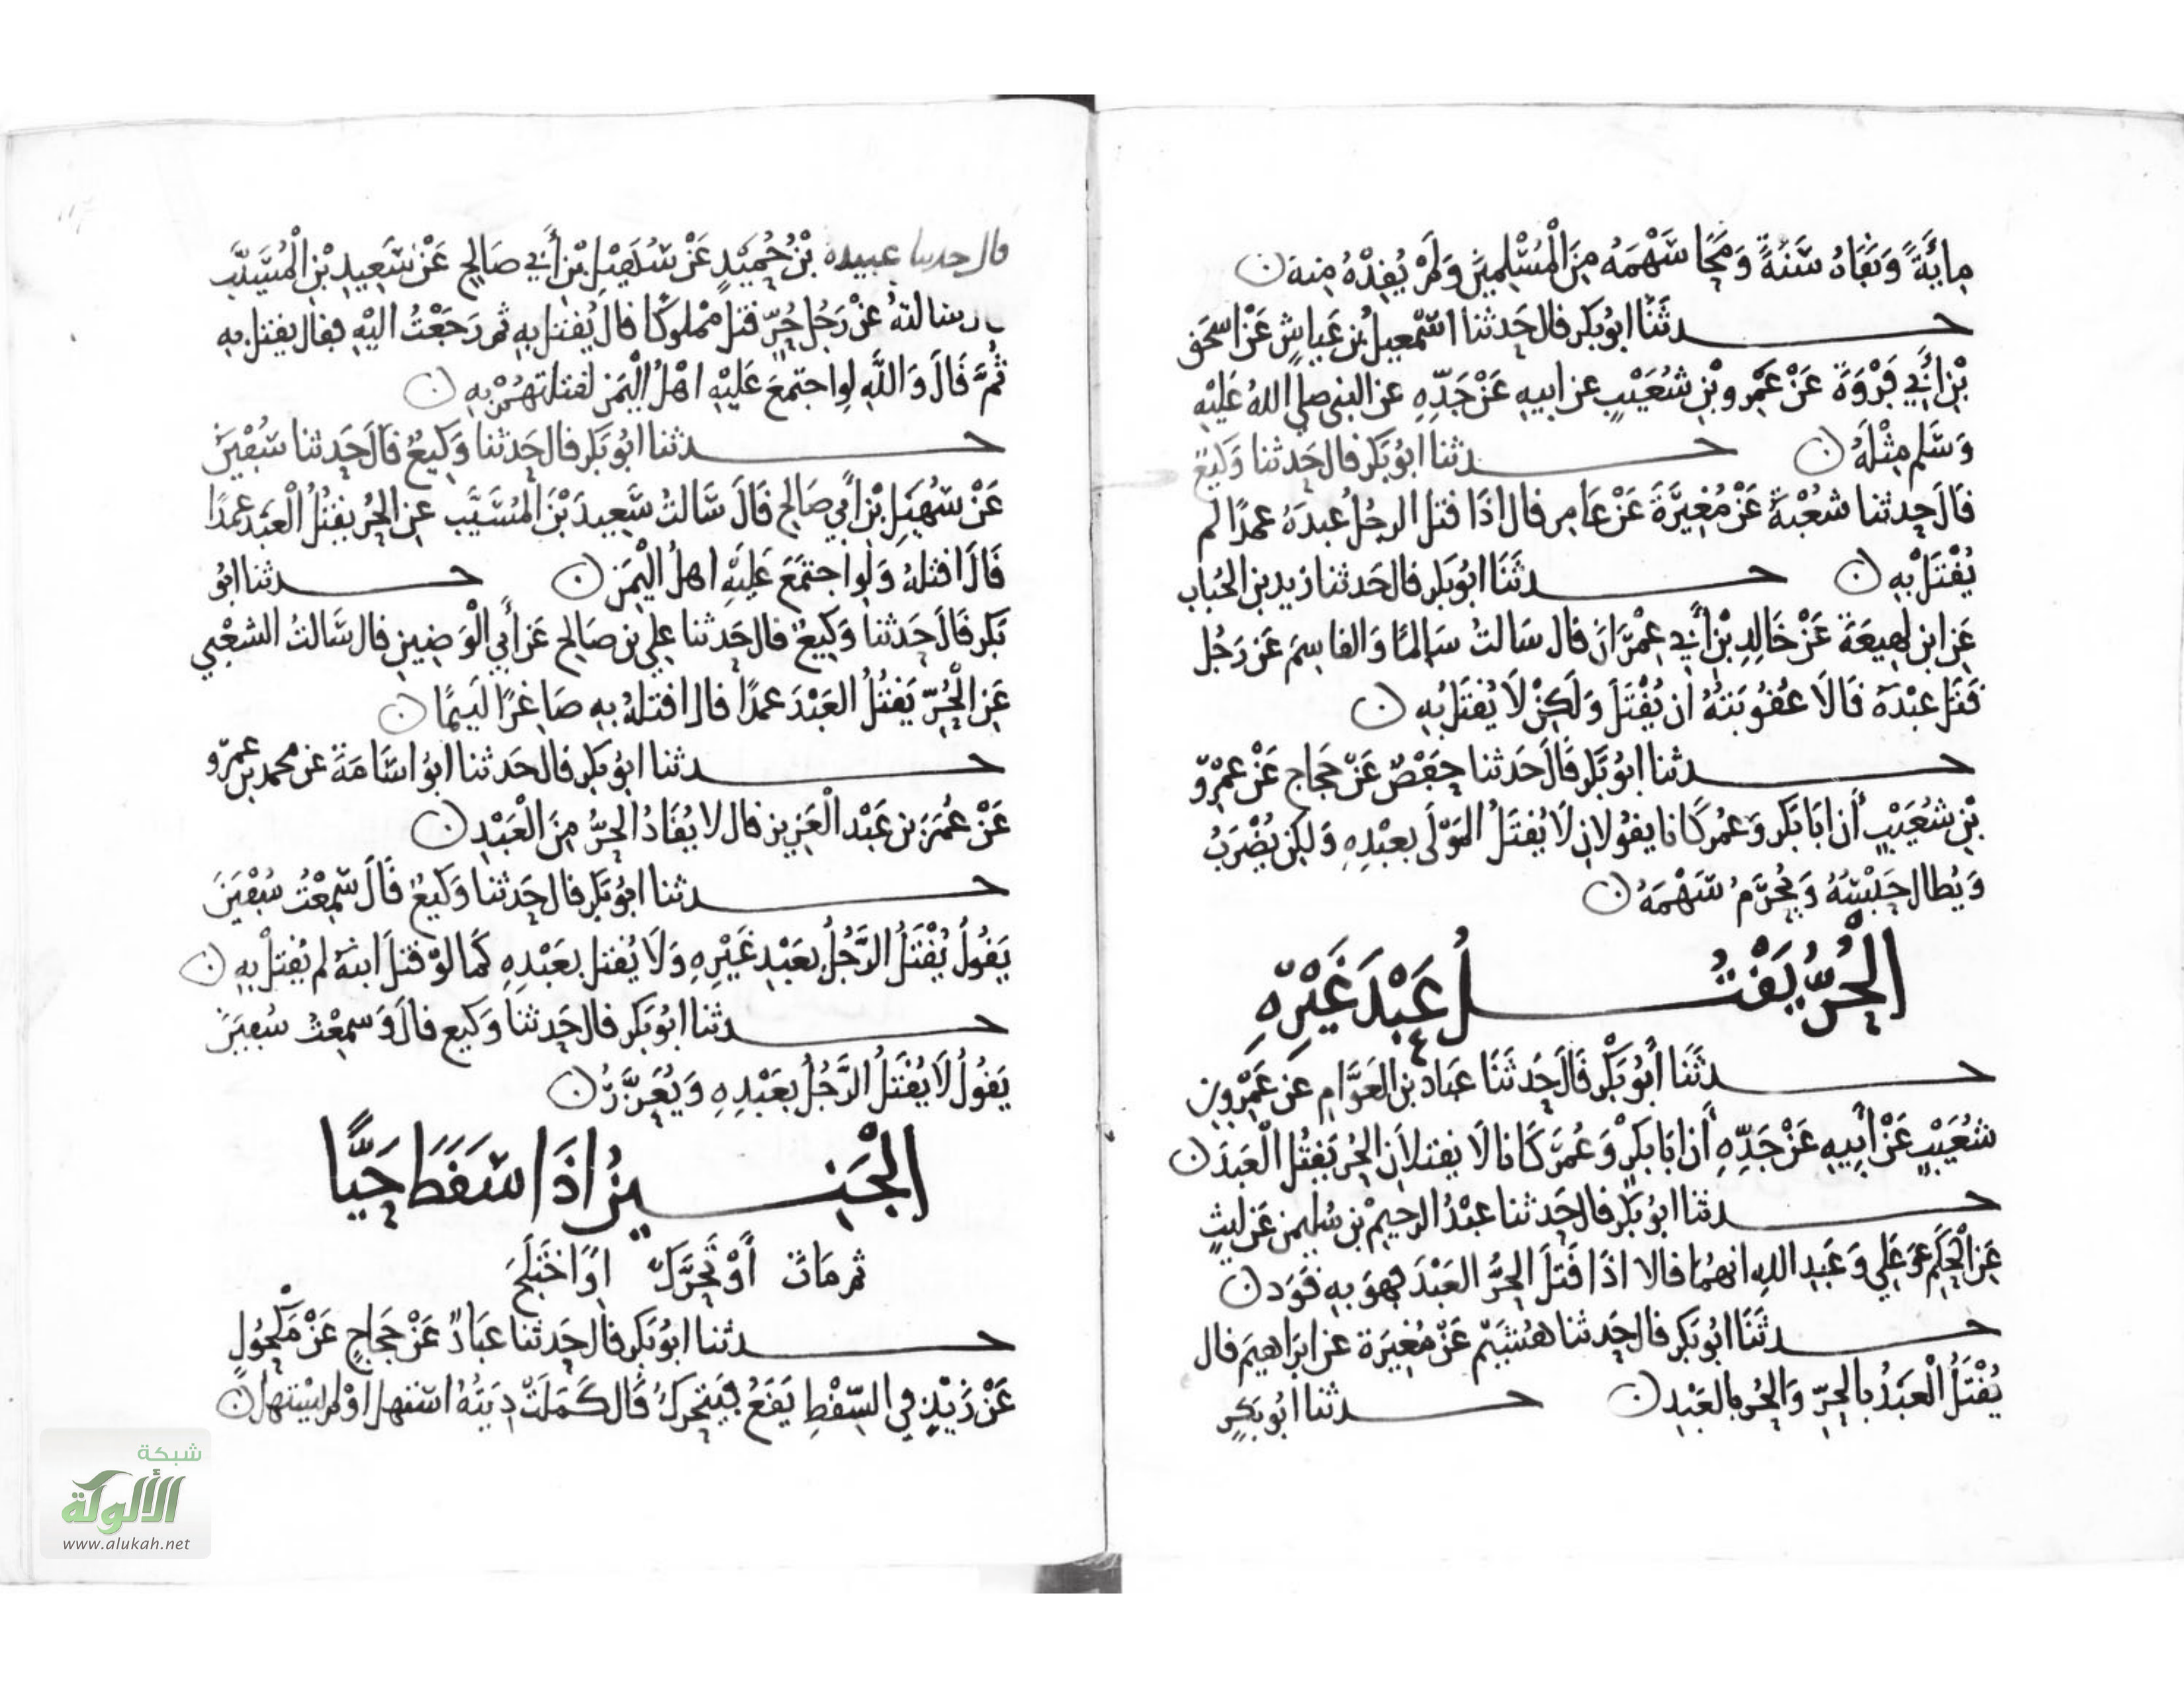 مِائَةً وَنَفَاهُ سَنَةً وَمَحَا سَهْمَهُ مِنَ الْمُسْلِمِينَ وَلَمْ يُقِدْهُ مِنه
حدثَنا ابُو بَكر قال حَدثنا اسمعيلُ بْن عَياشٍ عَنْ اسحَق
بْنِ أَبِي فَرْوَةَ عَنْ عَمْرِو بْنِ شُعَيْبٍ عن ابيهِ عَنْ جَدِّهِ عن النبي صلى اللهُ عَلَيْهِ
وَسَلم مِثْلَهُ حدثنا ابُو بَكر قال حَدثنا وَكيعٌ
قَالَ حدثنا شُعْبةُ عَنْ مُغِيرَةَ عَنْ عَامِر قال اذَا قتل الرجُل عبدَهُ عمدًا لم
يُقْتَلْ بِهِ حدثَنَا ابُو بَكر قال حَدثنا زيد بن الحُباب
عَنِ ابن لهِيعَةَ عَنْ خَالِدِ بْنِ أَبِي عِمْرَانَ قال سَالتُ سَالمًا وَالقاسِمَ عَن رَجُل
قَتَل عبْدَهُ قَالا عُقُوبَتهُ ان يُقْتَلَ وَلَكِنْ لَا يُقتَل بِهِ
حدثنا ابُو بَكر قَالَ حَدثنا حَفْصٌ عَنْ حَجاج عَنْ عَمْرِو
بْنِ شُعَيْبٍ أن ابَا بَكر وَعُمر كَانا يقولانِ لَا يُقتَلُ المَوْلَى بعبْدِهِ وَلكِن يُضْرَبُ
وَيُطال حَبْسُهُ وَيُحْرَمُ سَهْمَهُ
الْحُرُّ يَقْتُلُ عَبْدَ غَيْرِهِ
حدثَنَا أَبُو بَكْرٍ قَالَ حَدثَنَا عبَاد بن العَوَّامِ عَن عَمْرِو بن
شُعَيْبٍ عَنْ أَبِيهِ عَنْ جَدِّهِ أَن ابَا بَكرٍ وَعُمَرَ كَانا لَا يقتلانِ الحُر يَقتُل الْعَبدَ
حدثنا ابُو بَكر قال حَدثنا عبْدُ الرحِيمْ بن سُليمن عَن لَيثٍ
عَنِ الْحَكَم عَن عَلِي وَعَبد اللهِ انهُمَا قالا اذَا قَتَلَ الحُرُّ العَبْدَ فهوَ بهِ قَوَد
حدثَنَا ابُو بَكر قال حَدثنا هُشَيْم عَنْ مُغِيرَة عن ابرَاهِيم قال
يُقْتَلُ الْعَبْدُ بِالْحُرِّ وَالحُر بالعَبْدِ حدثنا ابُو بَكر
قال حدثنا عبيدة بْنُ حُمَيْدٍ عَنْ سُهَيْلِ بْنِ أَبِي صَالِح عَنْ سَعِيدِ بْنِ الْمُسَيَّب
سالتهُ عَنْ رَجُل حُرّ قتل مَمْلوكًا قال يُقتل بهِ ثم رَجَعْتُ اليْهِ فقال يقتل به
ثُمَّ قَالَ وَاللَّهِ لو اجتمَعَ عَلَيْهِ اهْلُ الْيَمَن لقتلتهُمْ بِهِ
حدثنا ابُو بَكر قال حَدثنا وَكيعٌ قَالَ حَدثنا سُفْيَنُ
عَنْ سُهَيْلِ بْنِ أَبي صَالح قَالَ سَالتُ سَعِيدَ بْنَ المُسَيَّبِ عَنِ الحُر يقتُلُ الْعَبدَ عمدًا
قَالَ اقتلهُ وَلو اجتمَعَ عَليْهِ اهلُ الْيمَن حدثنا ابُو
بَكر قَالَ حَدثنا وَكِيعٌ قال حَدثنا علي بن صَالح عَن أَبي الْوَضِينِ قال سَالتُ الشعْبي
عَنِ الْحُرِّ يَقْتُلُ العَبْدَ عمدًا قال اقتلهُ بهِ صَاغِرًا لَئِيمًا
حدثنا ابُو بَكر قال حَدثنا ابُو اسَامَةَ عن محمد بن عَمرو
عَنْ عُمَرَ بن عَبْد الْعَزِيزِ قال لا يُقَادُ الحُرُّ مِنَ الْعَبْدِ
حدثنا ابُو بَكر قال حَدثنا وَكيعٌ قَالَ سَمِعْتُ سُفْيَنَ
يَقُولُ يُقْتَلُ الرَّجُلُ بعَبْدِ غَيْرِهِ وَلَا يُقتل بعَبْدِهِ كَمَا لَوْ قتلَ ابنهُ لم يُقتلْ بِهِ
حدثنا ابُو بَكر قال حَدثنا وَكيع قالَ وَسمِعْتُ سُفيَنَ
يَقُولُ لَا يُقْتَلُ الرَّجُلُ بعَبْدِهِ وَيُعَزَّرُ
الْجَنِينُ اذَا سَقَطَ حَيًّا
ثم مَاتَ أَوْ تَحَرَّكَ اوِ اخْتَلَجَ
حدثنا ابُو بَكر قال حَدثنا عبَادٌ عَنْ حَجَاجٍ عَنْ مَكْحُولٍ
عَنْ زَيْدٍ فِي السِّقْطِ يَقَعُ فيَتحَركُ قَال كَمَلَتْ دِيَتُهُ استهل اوْ لم يسْتهل
شبكة
الألوكة
www.alukah.net